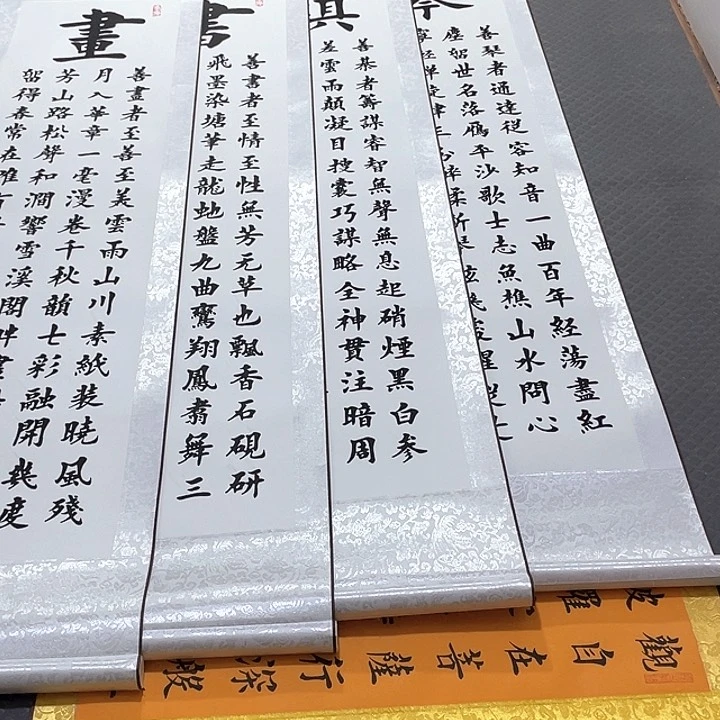 善琴者通達從容知音一曲百年經蕩盡紅
塵留世名落雁平沙歌士志魚樵山水問心
善棊者籌謀睿智無聲無息起硝煙黑白參
差雲雨顛凝目搜囊巧謀略全神貫注暗周
書
善書者至情至性無芳无草也飄香石硯研
飛墨染塘華走龍蛇盤九曲鸞翔鳳翥舞三
畫
善畫者至善至美雲雨山川素紙裝曉風殘
月入華章一毫漫卷千秋韻七彩融開幾度
芳山路松聲和澗響雪溪閣畔
留得春常在
觀自在菩薩行深般
波羅